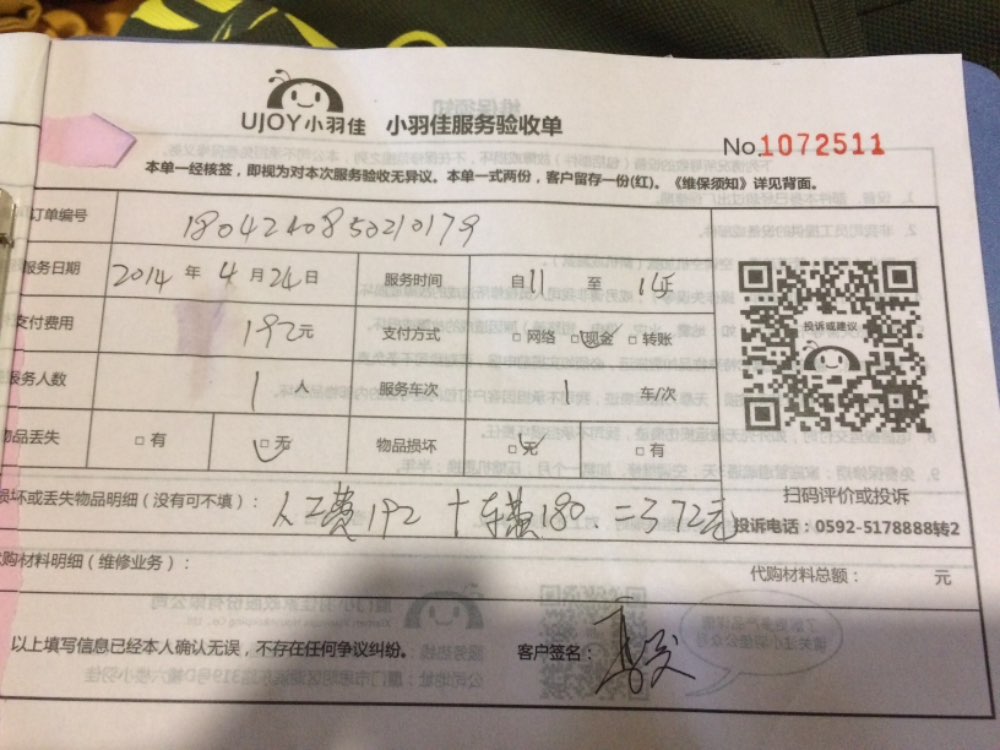 UJOY小羽佳 小羽佳服务验收单
No.1072511
本单一经核签，即视为对本次服务验收无异议。本单一式两份，客户留存一份(红)。《维保须知》详见背面。
订单编号 1804240850210179
服务日期 2014 年 4 月 24 日 服务时间 自 11 至 14
支付费用 192 元 支付方式 □ 网络 □ 现金 □ 转账
服务人数 1 人 服务车次 1 车/次
物品丢失 □ 有 □ 无 物品损坏 □ 无 □ 有
投诉或建议
扫码评价或投诉
投诉电话：0592-5178888转2
损坏或丢失物品明细（没有可不填）： 人工费192 + 车费180.=372元
代购材料明细（维修业务）： 代购材料总额： 元
以上填写信息已经本人确认无误，不存在任何争议纠纷。 客户签名：